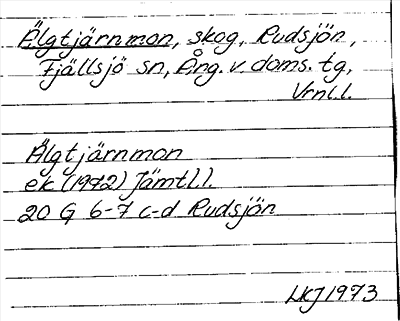 Älgtjärnmon, skog, Rudsjön,
Fjällsjö sn, Ång. v. doms. tg,
Vrnl.l.
Älgtjärnmon
ek (1972) Jämtl.l.
20 G 6-7 c-d Rudsjön
LKJ 1973